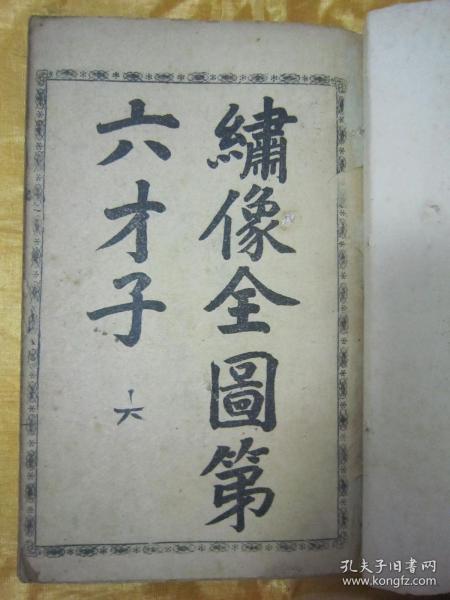 繡像全圖第
六才子
六
孔夫子旧书网
www.kongfz.com